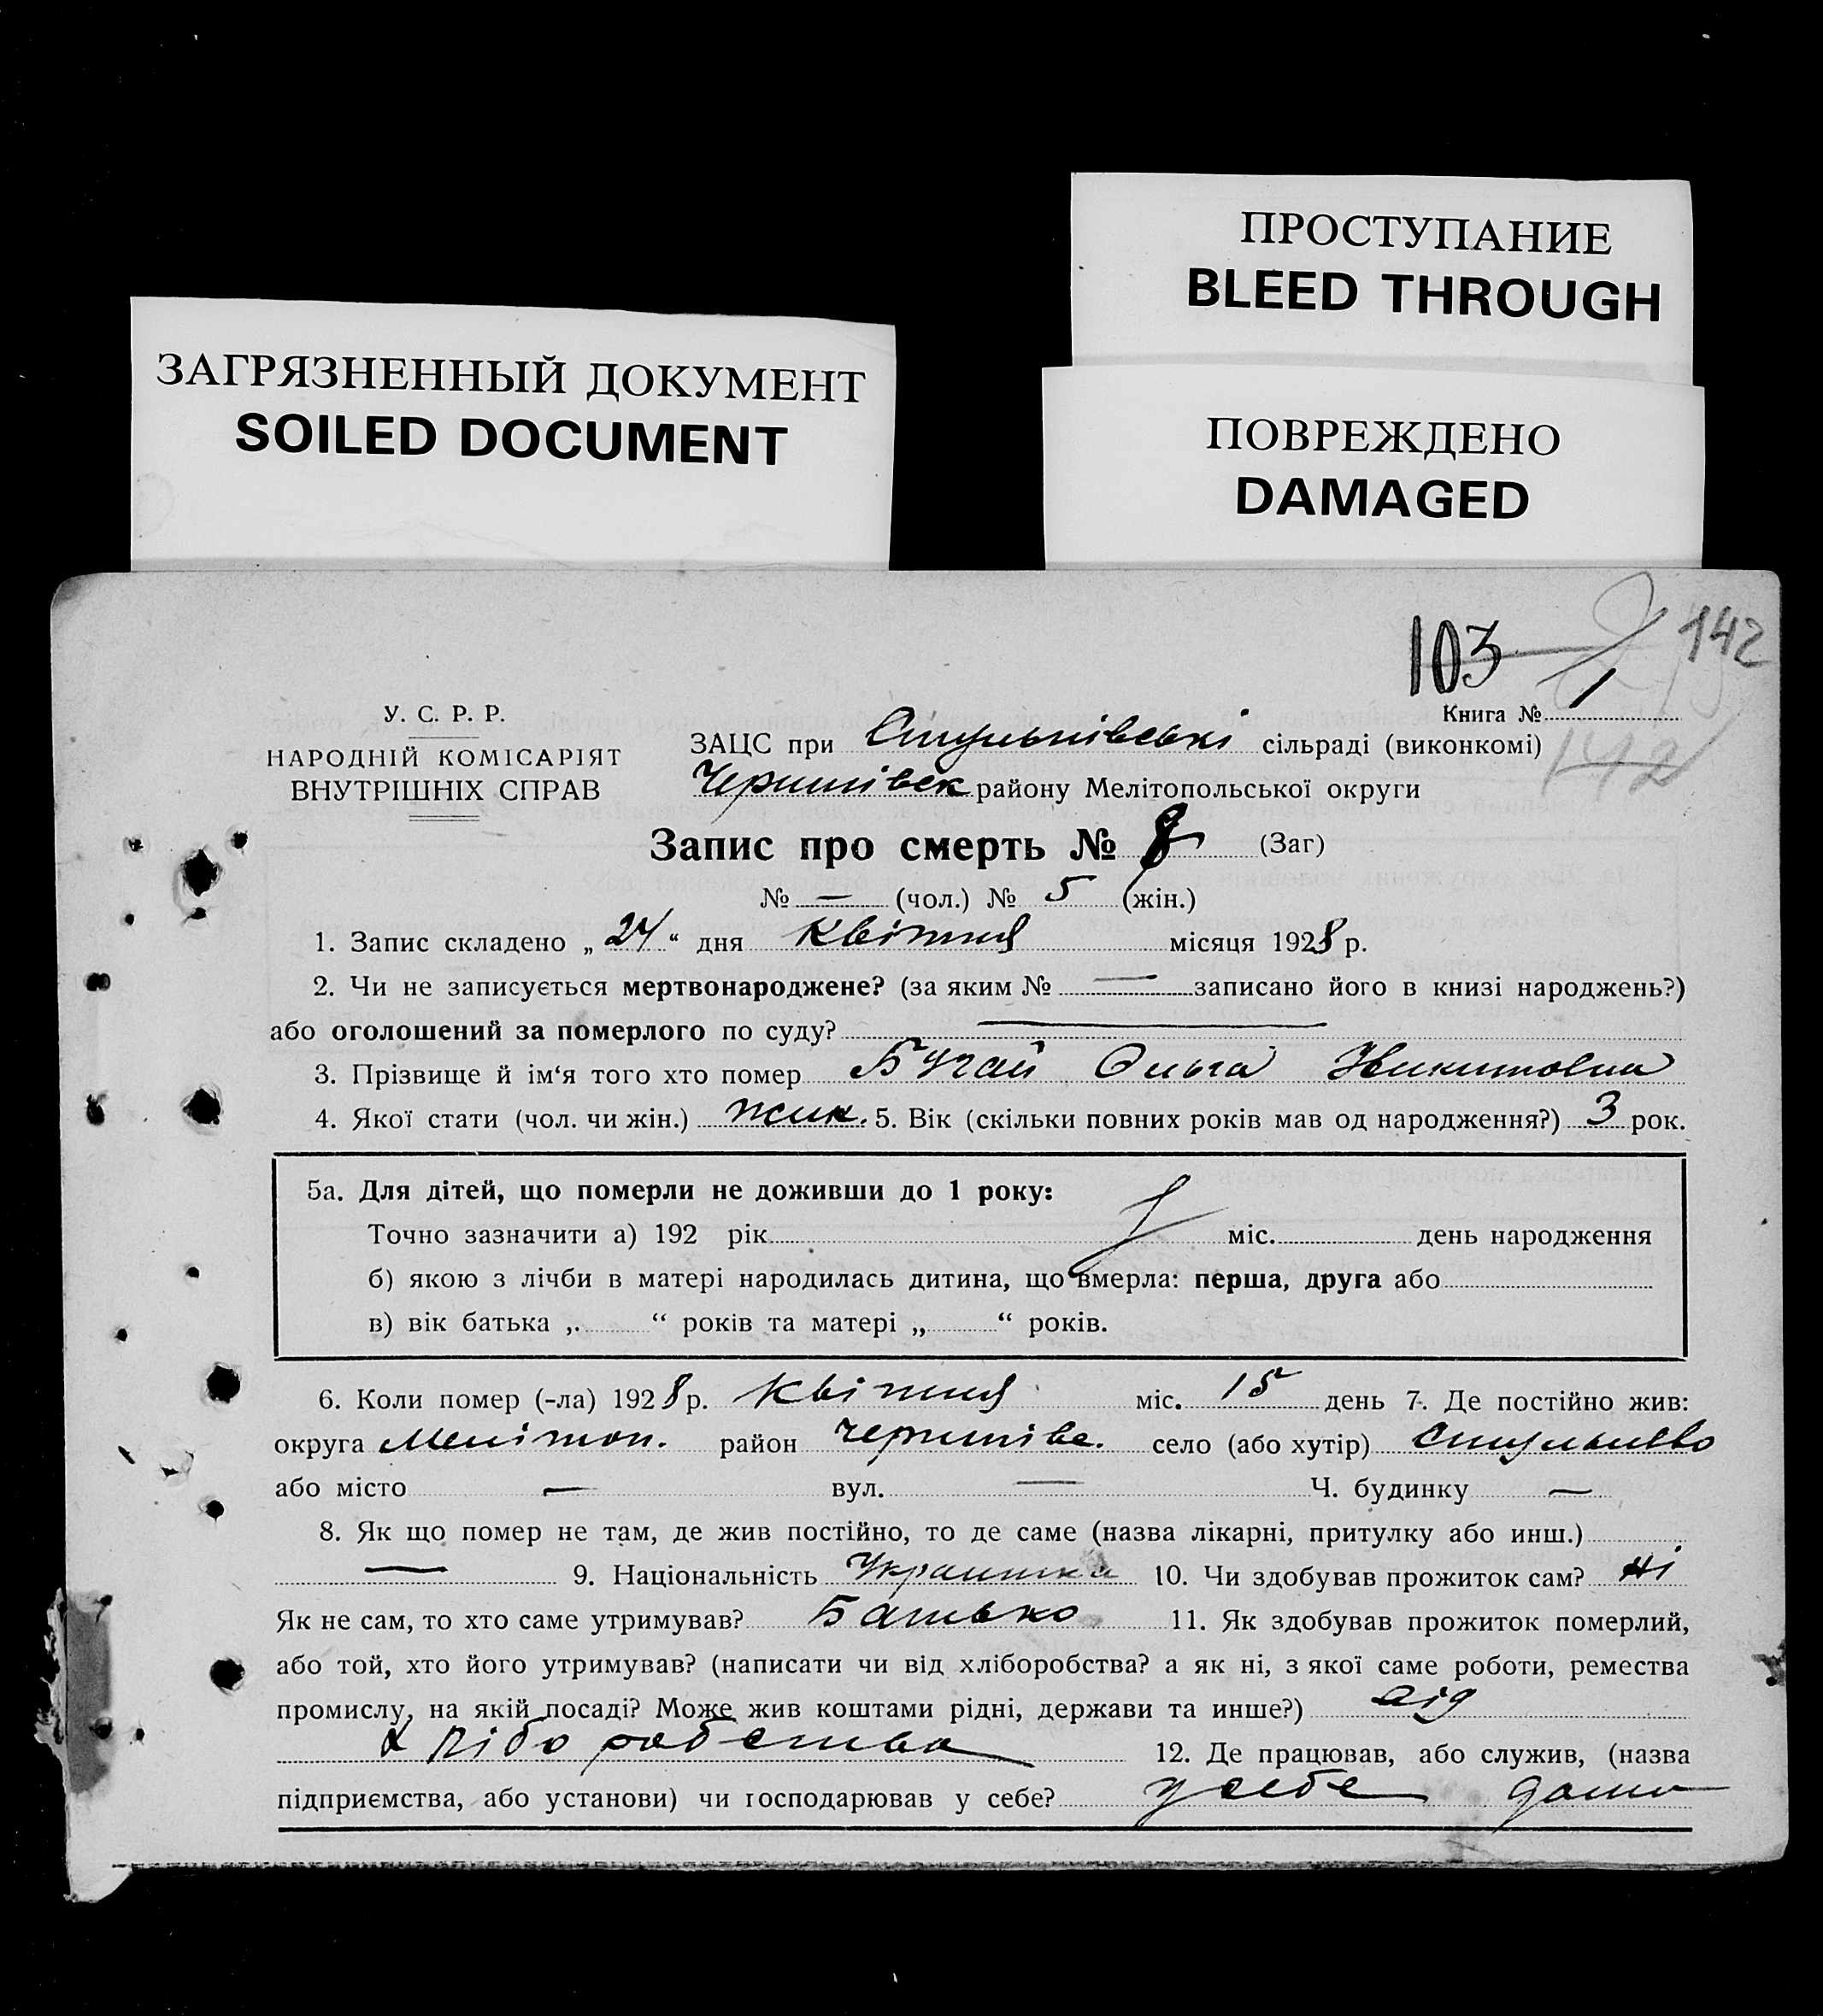 ПРОСТУПАНИЕ
BLEED THROUGH
ЗАГРЯЗНЕННЫЙ ДОКУМЕНТ
SOILED DOCUMENT
ПОВРЕЖДЕНО
DAMAGED
103 142
У. С. Р. Р.
НАРОДНІЙ КОМІСАРІЯТ
ВНУТРІШНІХ СПРАВ
Книга № 1
ЗАЦС при Стульнівські сільраді (виконкомі)
142
Чернигівск району Мелітопольської округи
Запис про смерть № 8 (Заг)
№ — (чол.) № 5 (жін.)
1. Запис складено „ 24 “ дня Квітня місяця 1928 р.
2. Чи не записується мертвонароджене? (за яким № — записано його в книзі народжень?)
або оголошений за померлого по суду? —
3. Прізвище й ім‘я того хто помер Бугай Ольга Никитовна
4. Якої стати (чол. чи жін.) жин. 5. Вік (скільки повних років мав од народження?) 3 рок.
5а. Для дітей, що померли не доживши до 1 року:
Точно зазначити а) 192 рік міс. день народження
б) якою з лічби в матері народилась дитина, що вмерла: перша, друга або
в) вік батька „ “ років та матері „ “ років.
6. Коли помер (-ла) 1928 р. Квітня міс. 15 день 7. Де постійно жив:
округа Мелітоп. район Чернигівс. село (або хутір) Стульнево
або місто — вул. — Ч. будинку —
8. Як що помер не там, де жив постійно, то де саме (назва лікарні, притулку або инш.)
— 9. Національність Украинка 10. Чи здобував прожиток сам? ні
Як не сам, то хто саме утримував? Батько 11. Як здобував прожиток померлий,
або той, хто його утримував? (написати чи від хліборобства? а як ні, з якої саме роботи, ремества
промислу, на якій посаді? Може жив коштами рідні, держави та инше?) від
хліборобства 12. Де працював, або служив, (назва
підприємства, або установи) чи господарював у себе? у себе дома